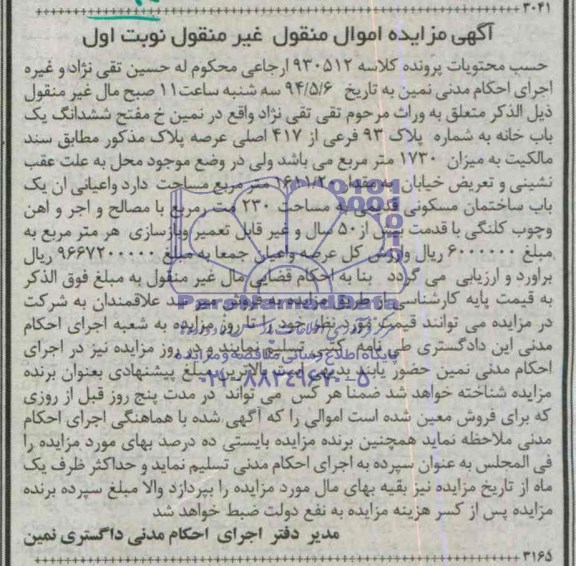 ۳۰۴۱
آگهی مزایده اموال منقول غیر منقول نوبت اول
حسب محتویات پرونده کلاسه ۹۳۰۵۱۲ ارجاعی محکوم له حسین تقی نژاد و غیره
اجرای احکام مدنی نمین به تاریخ ۹۴/۵/۶ سه شنبه ساعت ۱۱ صبح مال غیر منقول
ذیل الذکر متعلق به وراث مرحوم تقی تقی نژاد واقع در نمین خ مفتح ششدانگ یک
باب خانه به شماره پلاک ۹۳ فرعی از ۴۱۷ اصلی عرصه پلاک مذکور مطابق سند
مالکیت به میزان ۱۷۳۰ متر مربع می باشد ولی در وضع موجود محل به علت عقب
نشینی و تعریض خیابان به مقدار ۱۶۱۱/۲۰ متر مربع مساحت دارد واعیانی ان یک
باب ساختمان مسکونی قدیمی به مساحت ۲۳۰ متر مربع با مصالح و اجر و اهن
وچوب کلنگی با قدمت بیش از ۵۰ سال و غیر قابل تعمیر وبازسازی هر متر مربع به
مبلغ ۶۰۰۰۰۰۰ ریال وارزش کل عرصه واعیان جمعا به مبلغ ۹۶۶۷۲۰۰۰۰۰ ریال
براورد و ارزیابی می گردد بنا به احکام قضایی مال غیر منقول به مبلغ فوق الذکر
به قیمت پایه کارشناسی از طریق مزایده به فروش می رسد علاقمندان به شرکت
در مزایده می توانند قیمت مورد نظر خود را تا روز مزایده به شعبه اجرای احکام
مدنی این دادگستری طی نامه کتبی تسلیم نمایند و در روز مزایده نیز در اجرای
احکام مدنی نمین حضور یابند بدیهی است بالاترین مبلغ پیشنهادی بعنوان برنده
مزایده شناخته خواهد شد ضمنا هر کس می تواند در مدت پنج روز قبل از روزی
که برای فروش معین شده است اموالی را که آگهی شده با هماهنگی اجرای احکام
مدنی ملاحظه نماید همچنین برنده مزایده بایستی ده درصد بهای مورد مزایده را
فی المجلس به عنوان سپرده به اجرای احکام مدنی تسلیم نماید و حداکثر ظرف یک
ماه از تاریخ مزایده نیز بقیه بهای مال مورد مزایده را بپردازد والا مبلغ سپرده برنده
مزایده پس از کسر هزینه مزایده به نفع دولت ضبط خواهد شد
مدیر دفتر اجرای احکام مدنی داگستری نمین
۳۱۶۵
پایگاه اطلاع رسانی مناقصه و مزایده
۰۲۱-۸۸۳۴۹۶۷۰-۵